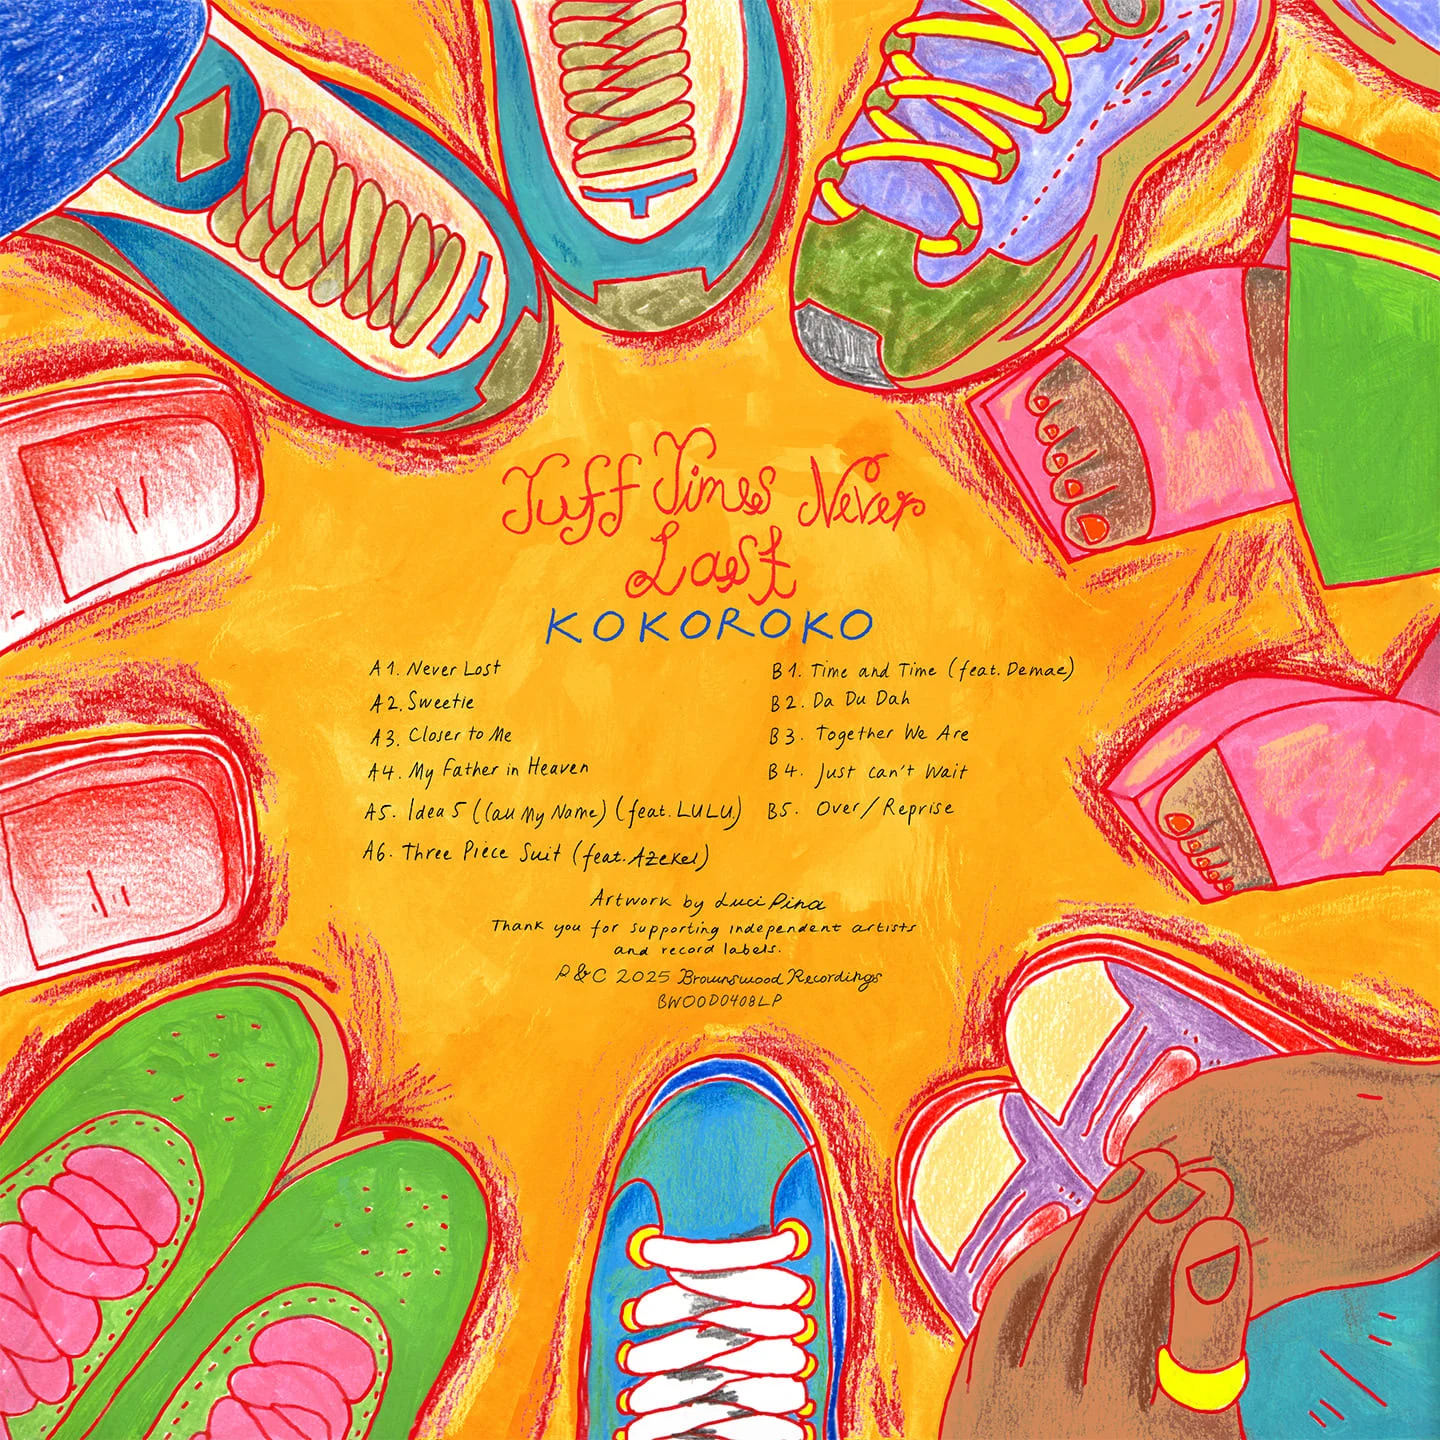 Tuff Times Never
Last
KOKOROKO
A1. Never Lost
A2. Sweetie
A3. Closer to Me
A4. My Father in Heaven
A5. Idea 5 (Call My Name) (feat. LULU)
A6. Three Piece Suit (feat. Azekel)
B1. Time and Time (feat. Demae)
B2. Da Du Dah
B3. Together We Are
B4. Just can't Wait
B5. Over / Reprise
Artwork by Luci Pina
Thank you for supporting independent artists
and record labels.
P & C 2025 Brownswood Recordings
BWOOD0408LP